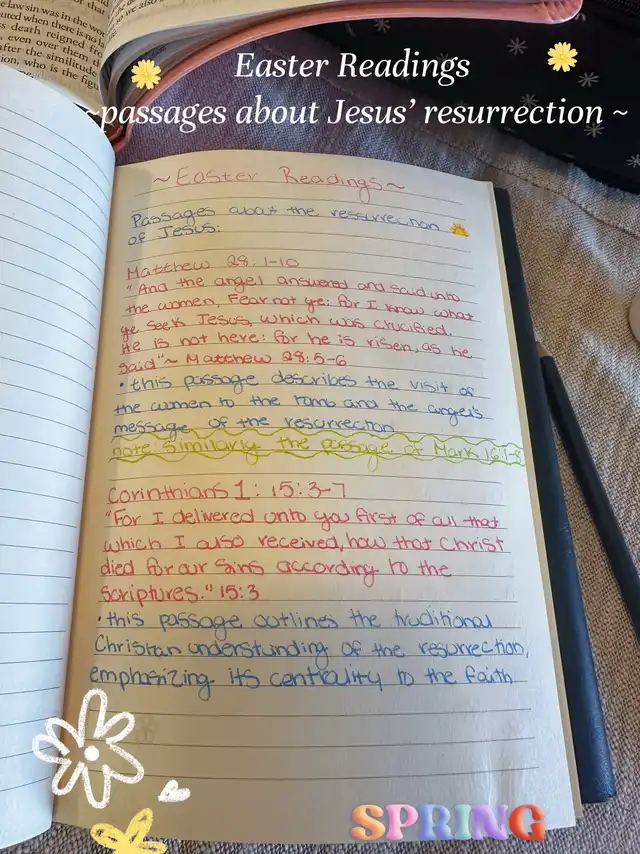 the law sin was in the wor
uted when there is no
s death reigned fr
even over them th
after the similitude
on, who is the figu
so we also
Easter Readings
~passages about Jesus' resurrection ~
~Easter Readings~
Passages about the ressurrection
of Jesus:
Matthew 28:1-10
"And the angel answered and said unto
the women, Fear not ye: for I know what
ye seek Jesus, which was crucified.
He is not here: for he is risen, as he
said"~ Matthew 28:5-6
• this passage describes the visit of
the women to the tomb and the angel's
message of the resurrection
note: similarly the passage of Mark 16:1-8
Corinthians 1: 15:3-7
"For I delivered unto you first of all that
which I also received, how that Christ
died for our sins according to the
scriptures." 15:3
• this passage outlines the traditional
Christian understanding of the resurrection,
emphasizing its centrality to the faith
SPRING